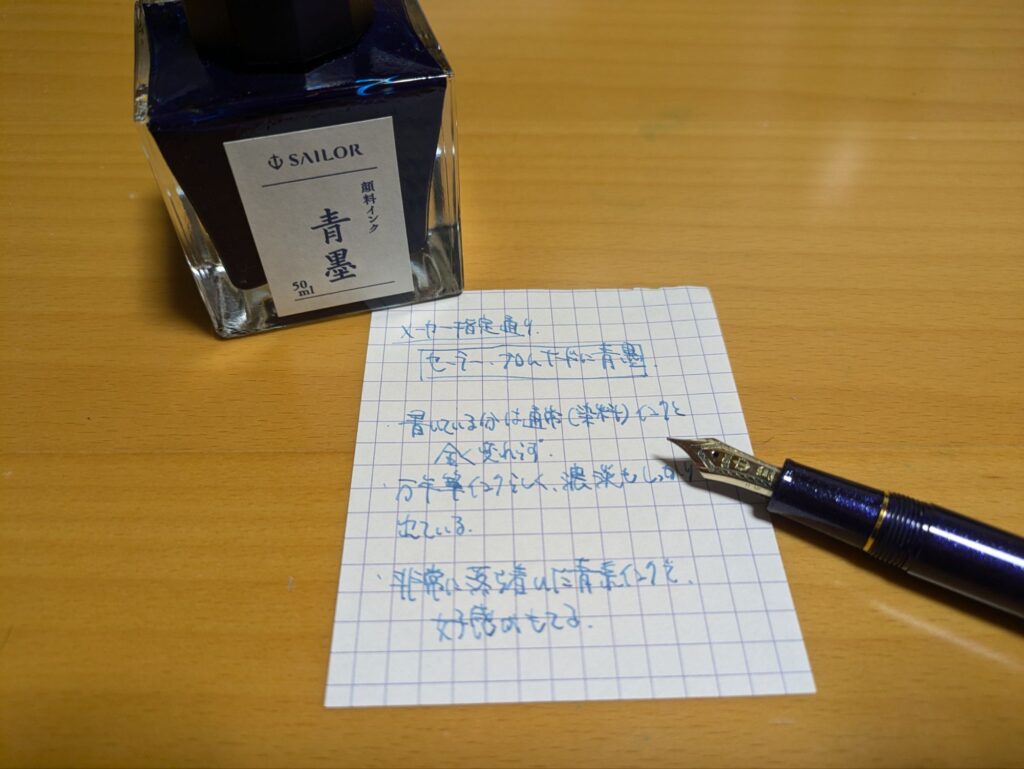 SAILOR
顔料インク
青墨
50
ml
メーカー指定通り.
セーラー、プロムナードに青墨
・書いている分は通常(染料)インクと
全く変わらず.
・万年筆インクらしく、濃淡もしっかり
出ている.
・非常に落ち着いた青系インクで、
好感がもてる.